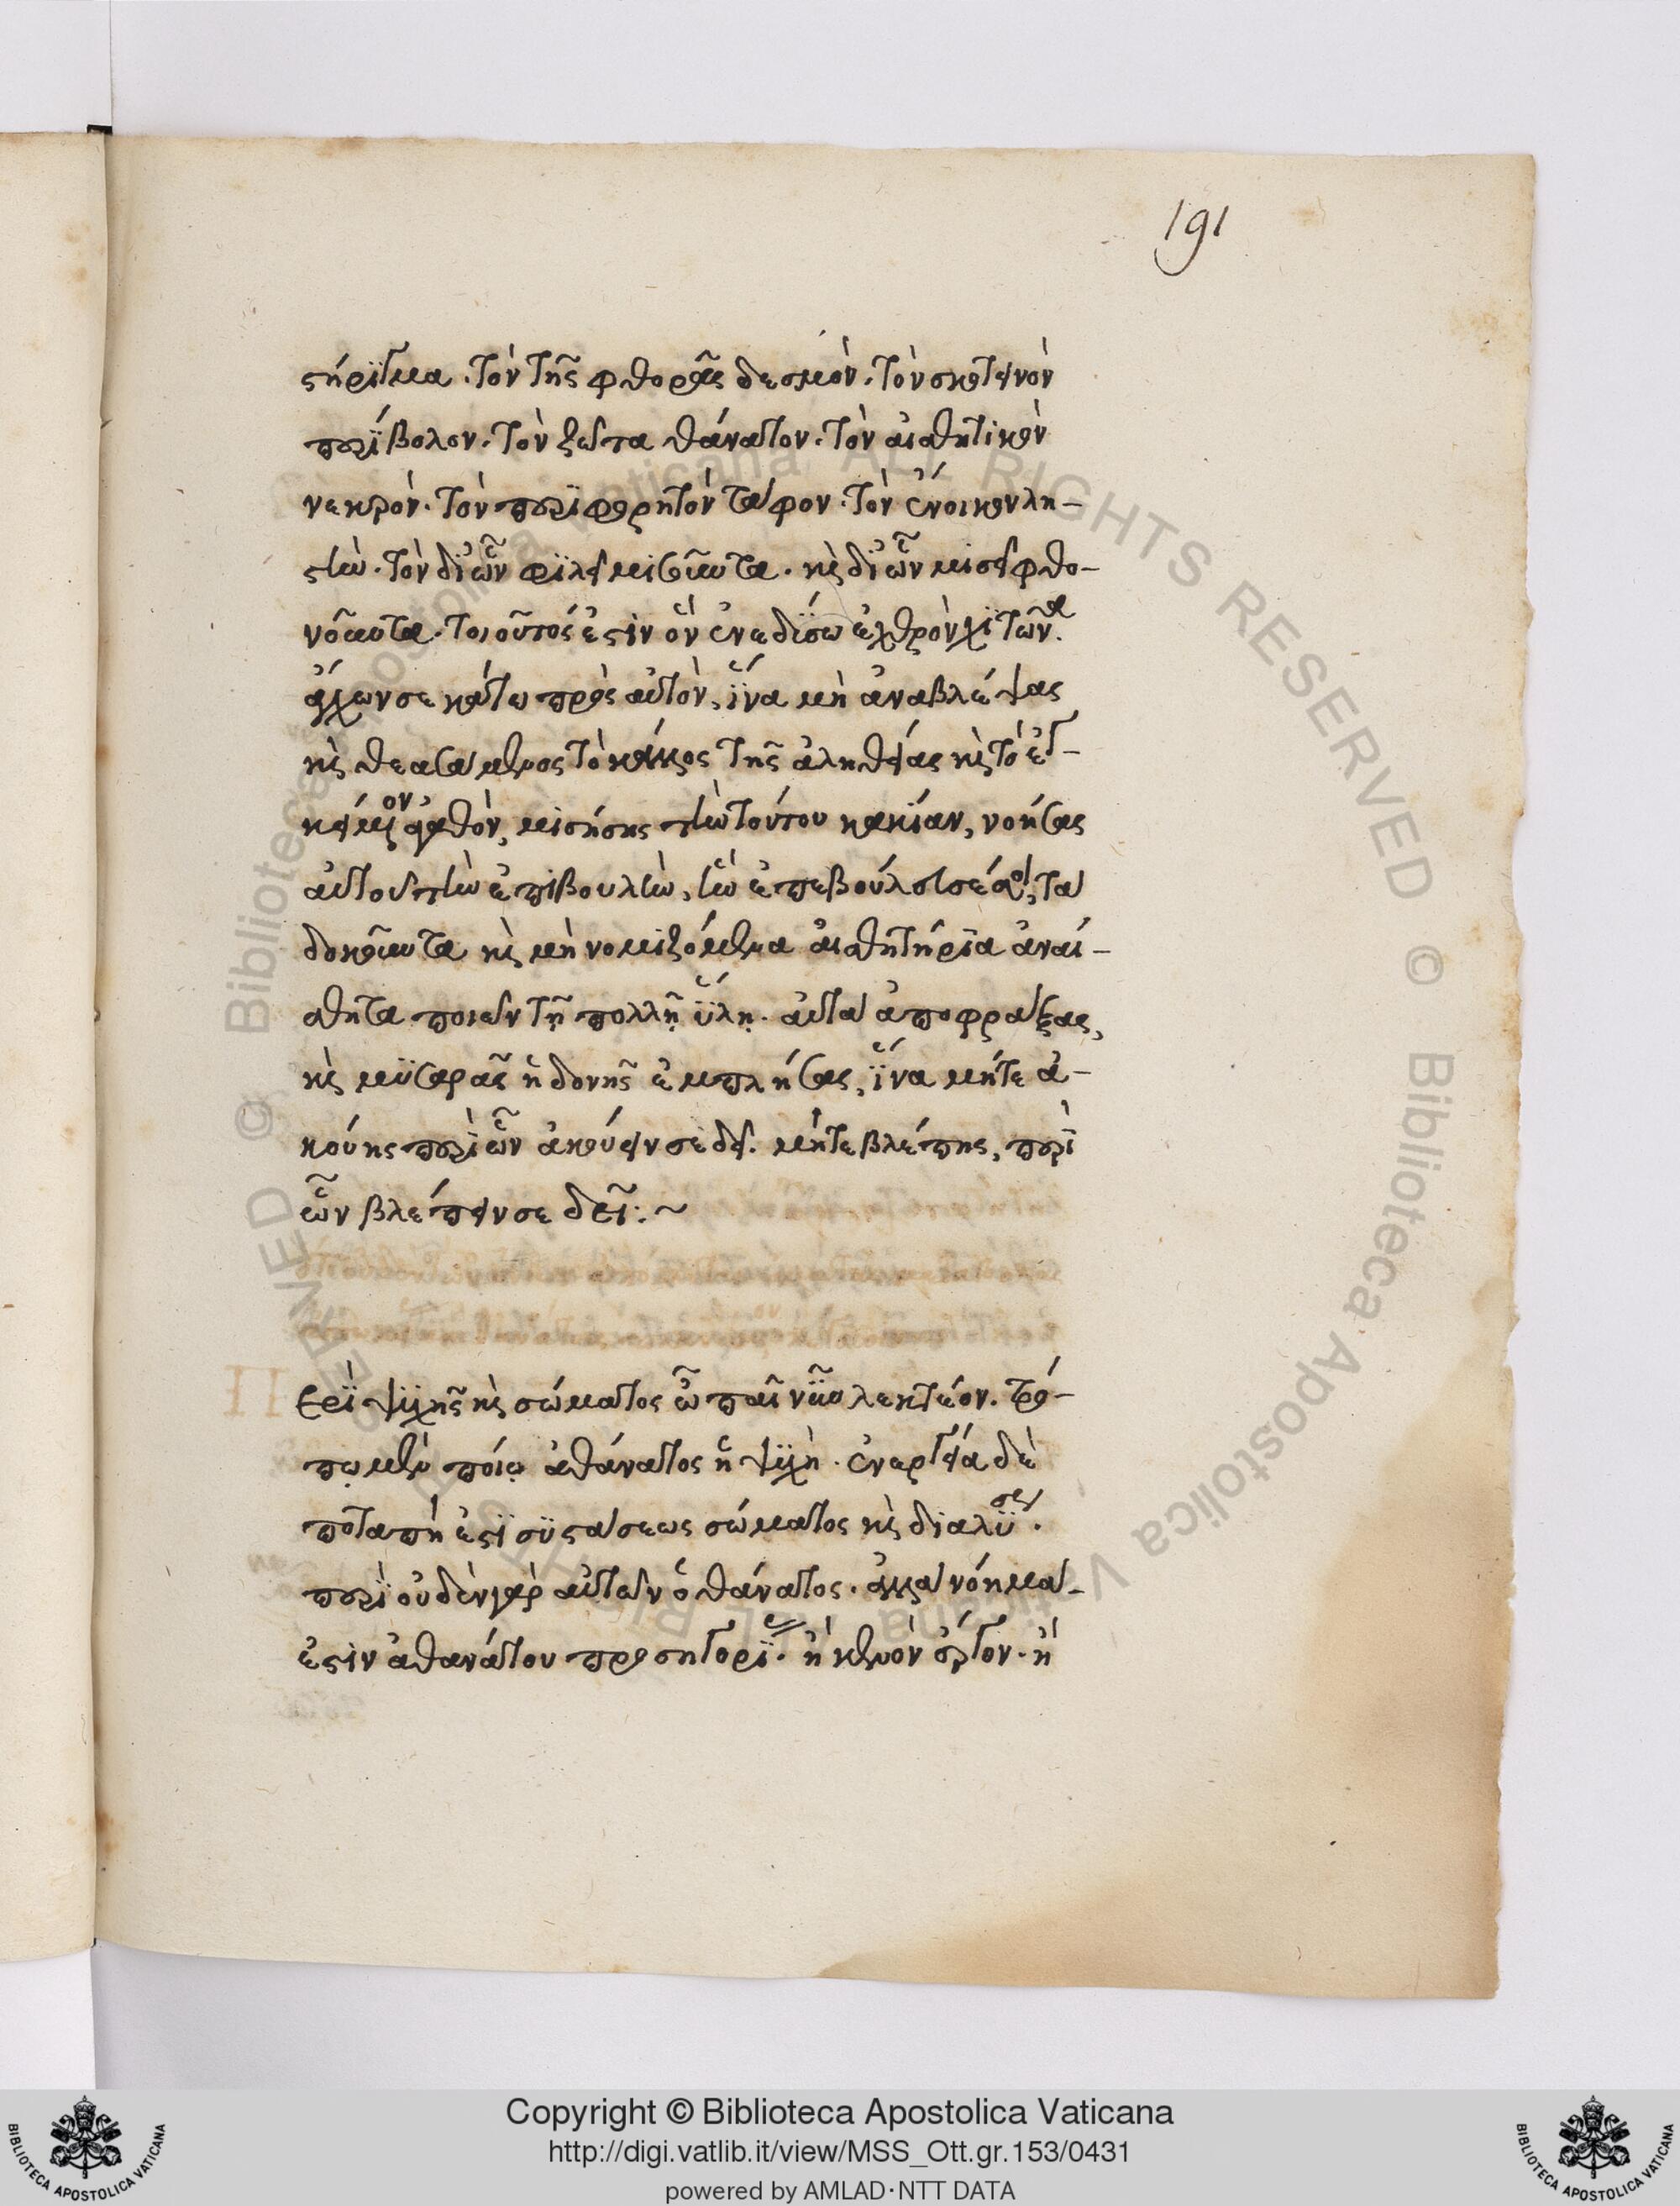 191
στήριγμα. τὸν τῆς φθορᾶς δεσμόν. τὸν σκοτεινὸν
περίβολον. τὸν ζῶντα θάνατον. τὸν αἰσθητικὸν
νεκρόν. τὸν περιφόρητον τάφον. τὸν ἔνοικον λη-
στήν. τὸν δι ὧν φιλεῖ μισοῦντα. καὶ δι ὧν μισεῖ φθο-
νοῦντα. τοιοῦτός ἐστιν ὃν ἐνεδύσω ἐχθρὸν χιτῶνα.
ἄγχων σε κάτω πρὸς αὐτόν, ἵνα μὴ ἀναβλέψας
καὶ θεασάμενος τὸ κάλλος τῆς ἀληθείας καὶ τὸ ἐγ-
κείμενον ἀγαθόν, μισήσης τὴν τούτου κακίαν, νοήσας
αὐτοῦ τὴν ἐπιβουλήν, ἣν ἐπεβούλευσέ σοι, τὰ
δοκοῦντα καὶ μὴ νομιζόμενα αἰσθητήρια ἀναί-
σθητα ποιῶν τῇ πολλῇ ὕλῃ. αὐτὰ ἀποφράξας,
καὶ μυσαρᾶς ἡδονῆς ἐμπλήσας, ἵνα μήτε ἀ-
κούης περὶ ὧν ἀκούειν σε δεῖ. μήτε βλέπης, περὶ
ὧν βλέπειν σε δεῖ:~
Περὶ ψυχῆς καὶ σώματος ὦ παῖ νῦν λεκτέον. τρό-
πῳ μὲν ποίῳ ἀθάνατος ἡ ψυχὴ. ἐνεργεία δὲ
ποταπή ἐστι συστάσεως σώματος καὶ διαλύσεως.
περὶ οὐδὲν γὰρ αὐτῶν ὁ θάνατος. ἀλλὰ νόημα
ἐστιν ἀθανάτου προσηγορίας. ἢ κενὸν ἔργον. ἢ
Copyright © Biblioteca Apostolica Vaticana
http://digi.vatlib.it/view/MSS_Ott.gr.153/0431
powered by AMLAD·NTT DATA